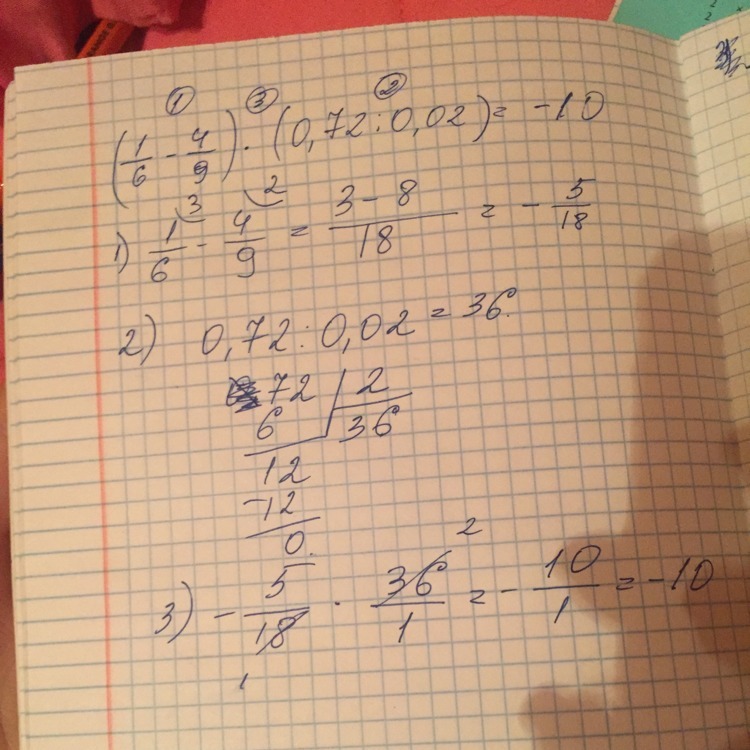 ① ③ ②
(1/6 - 4/9) · (0,72 : 0,02) = -10
1) 1/6 ³ - 4/9 ² = (3 - 8)/18 = - 5/18
2) 0,72 : 0,02 = 36.
72 | 2
6 | 36
12
-12
0.
3) - 5/18 · 36/1 = - 10/1 = -10
2
1